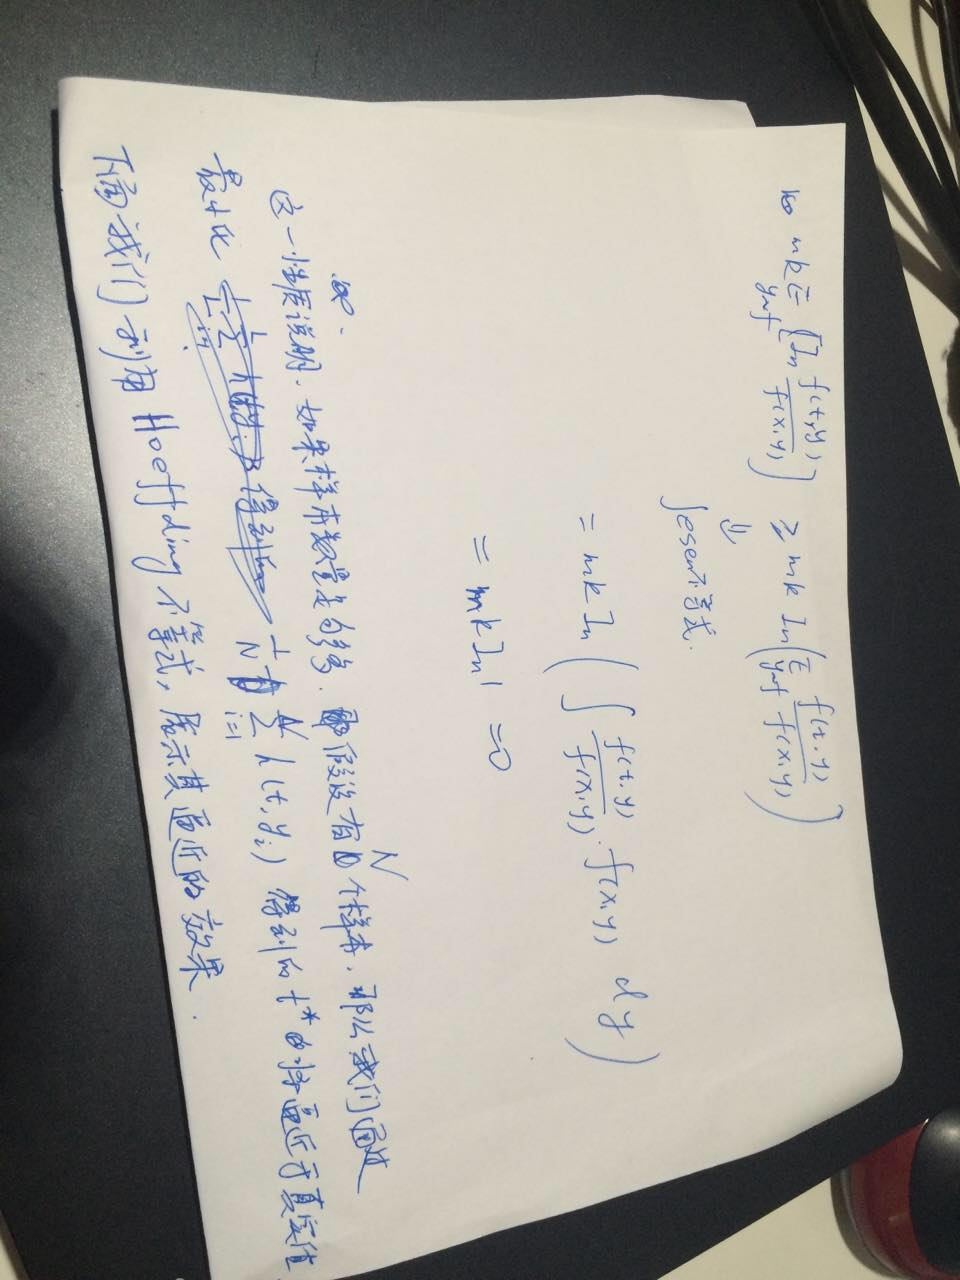 mk E_{y~f} [In \frac{f(t,y)}{f(x,y)}] ≥ mk In(E_{y~f} \frac{f(t,y)}{f(x,y)})
⇓
Jesen不等式.
= mk In(∫ \frac{f(t,y)}{f(x,y)} · f(x,y) dy)
= mk In1 =0
这一性质说明. 如果样本数量足够多. 假设有N个样本. 那么我们通过
最小化 \frac{1}{N} \sum_{i=1}^{N} h(t,y_i) 得到的 t* 将逼近于真实值
下面我们利用Hoeffding不等式, 展示其逼近的效果.